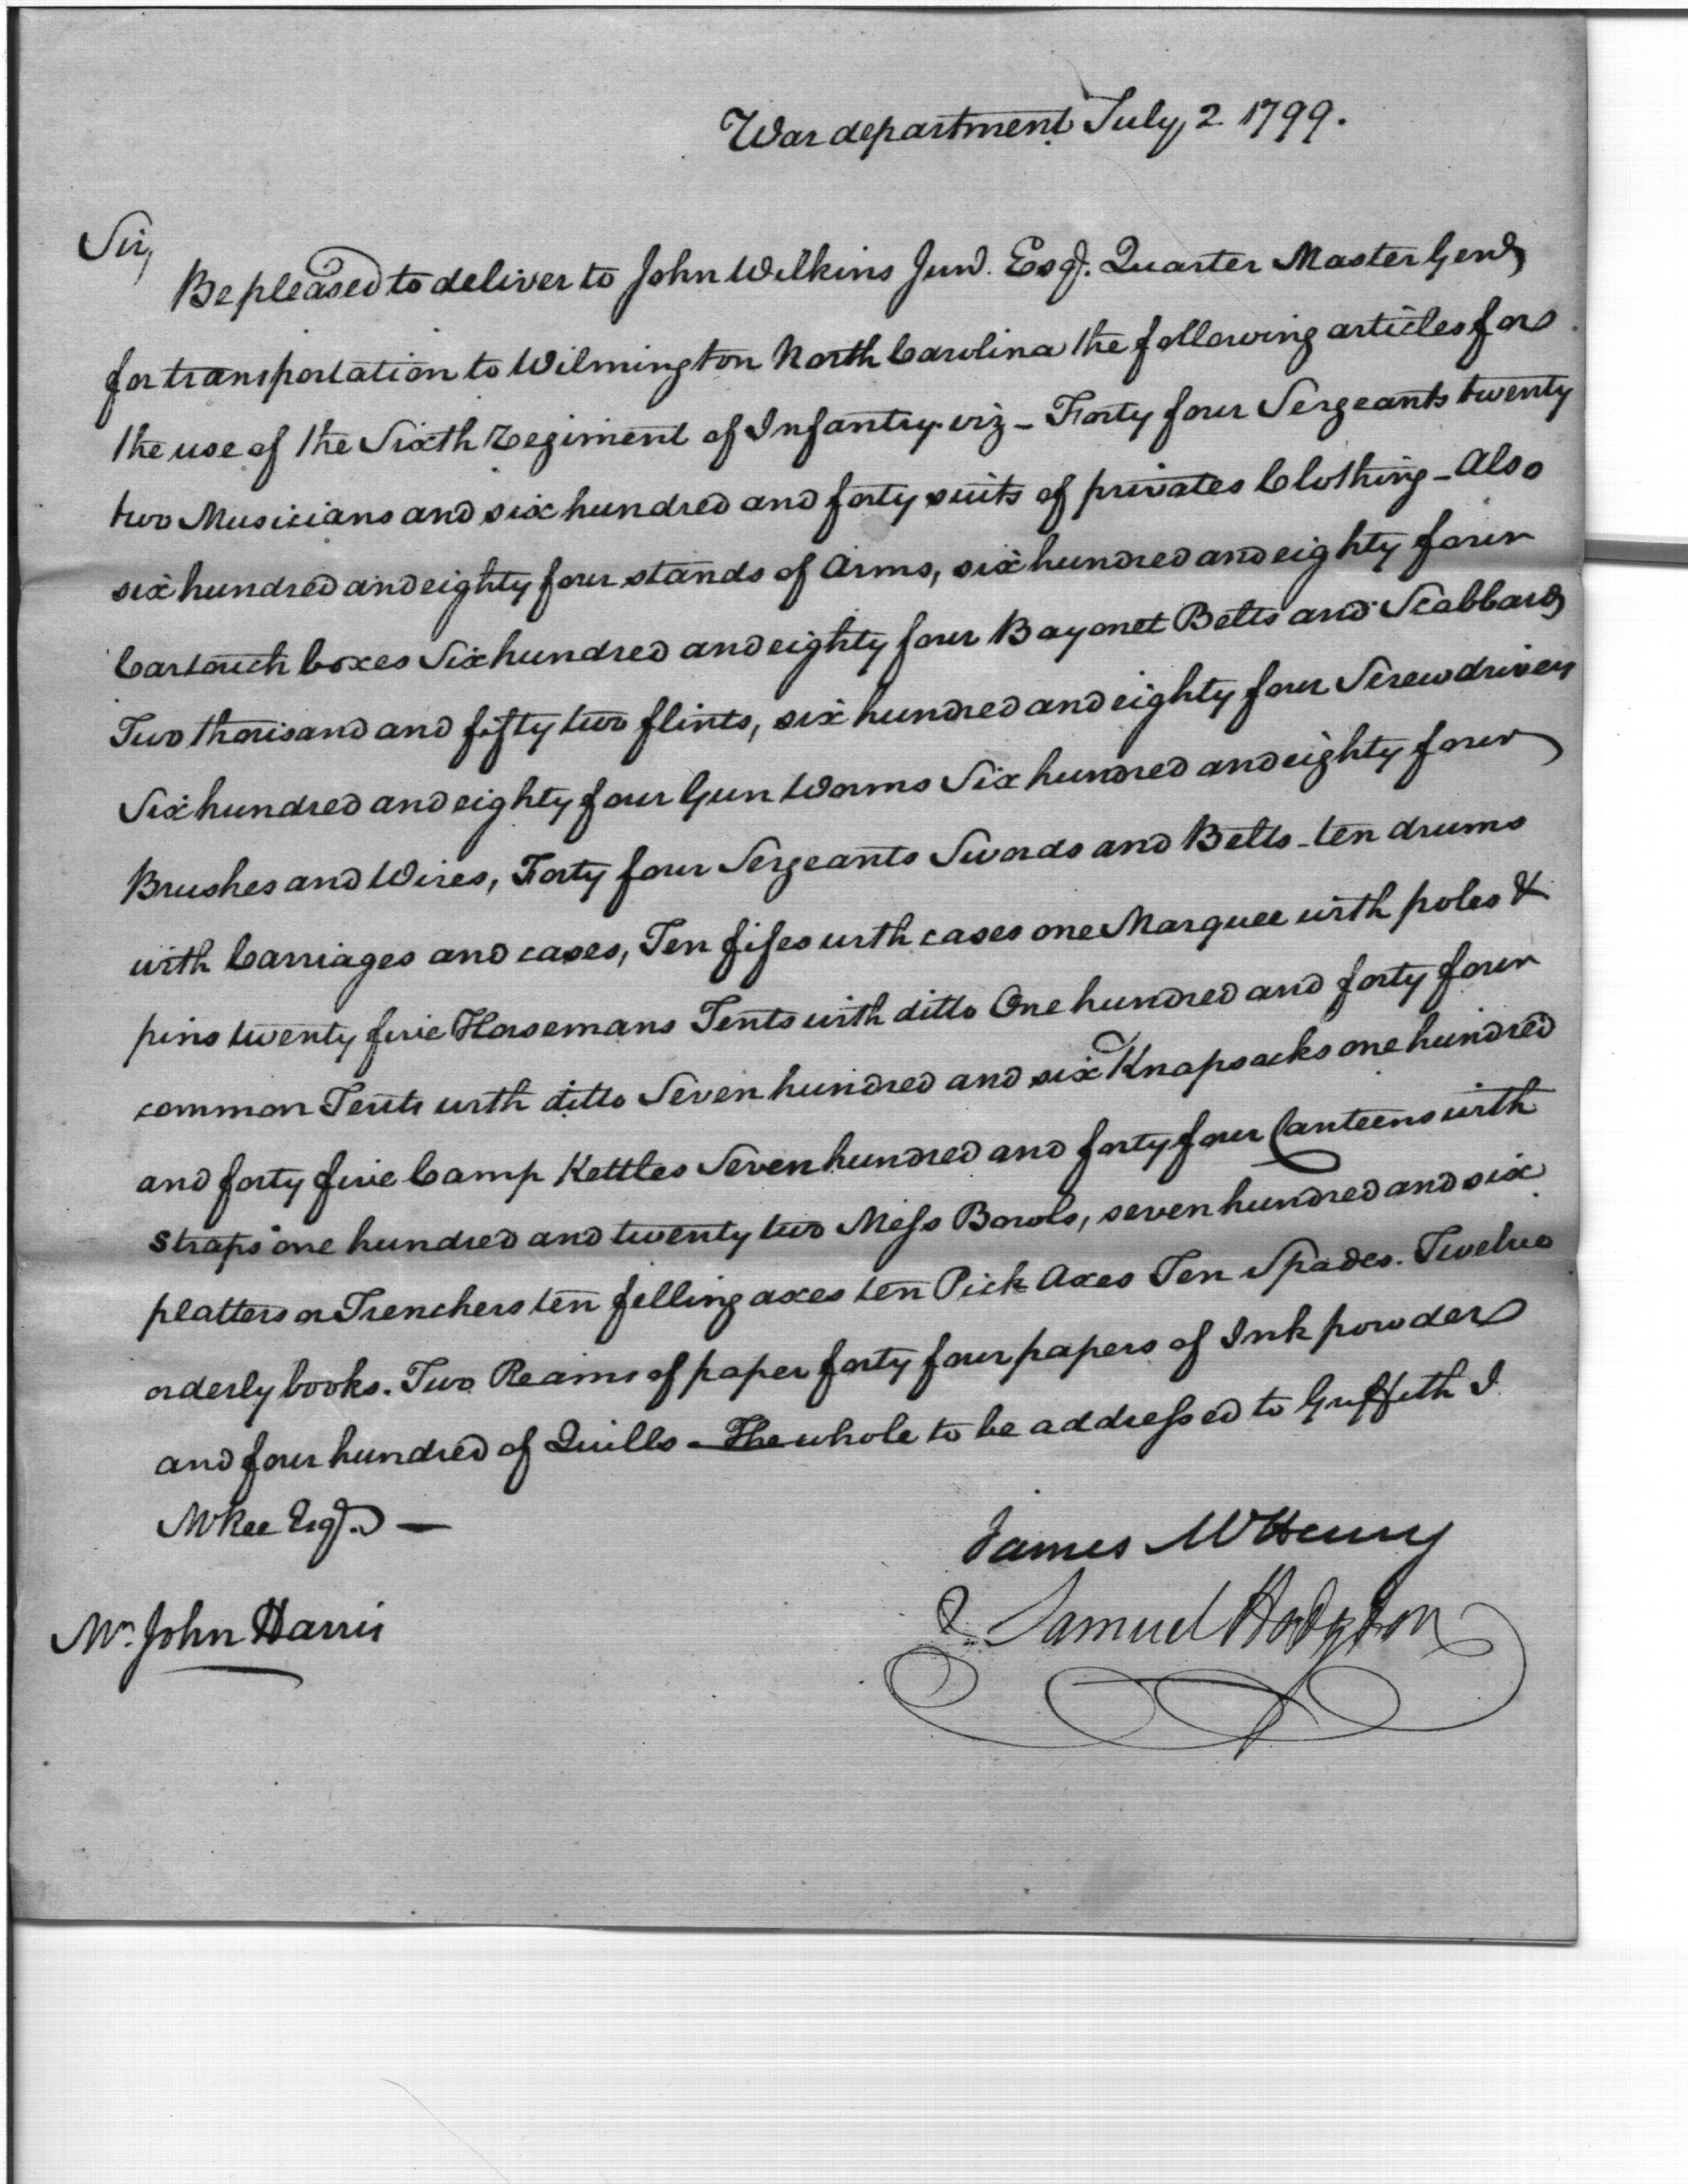 War department July, 2 1799.
Sir,
Be pleased to deliver to John Wilkins Junr. Esqr. Quarter Master Genl,
for transportation to Wilmington North Carolina the following articles for
the use of the Sixth Regiment of Infantry. viz - Forty four Sergeants twenty
two Musicians and six hundred and forty suits of privates Clothing - Also
six hundred and eighty four stands of Arms, six hundred and eighty four
Cartouch boxes Six hundred and eighty four Bayonet Belts and Scabbards
Two thousand and fifty two flints, six hundred and eighty four Screwdrivers
Six hundred and eighty four Gun Worms Six hundred and eighty four
Brushes and Wires, Forty four Sergeants Swords and Belts - ten drums
with Carriages and cases, Ten fifes with cases one Marquee with poles &
pins twenty five Horsemans Tents with ditto One hundred and forty four
common Tents with ditto Seven hundred and six Knapsacks one hundred
and forty five Camp Kettles Seven hundred and forty four Canteens with
straps one hundred and twenty two Mess Bowls, seven hundred and six
platters or Trenchers ten felling axes ten Pick Axes Ten Spades. Twelve
orderly books. Two Reams of paper forty four papers of Ink powder
and four hundred of Quills - The whole to be addressed to Griffith J
McRee Esqr. —
James McHenry
Samuel Hodgdon
Mr. John Harris